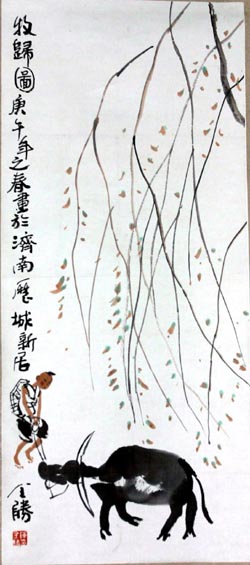 牧歸圖庚午年之春畫於濟南歷城新居
金勝